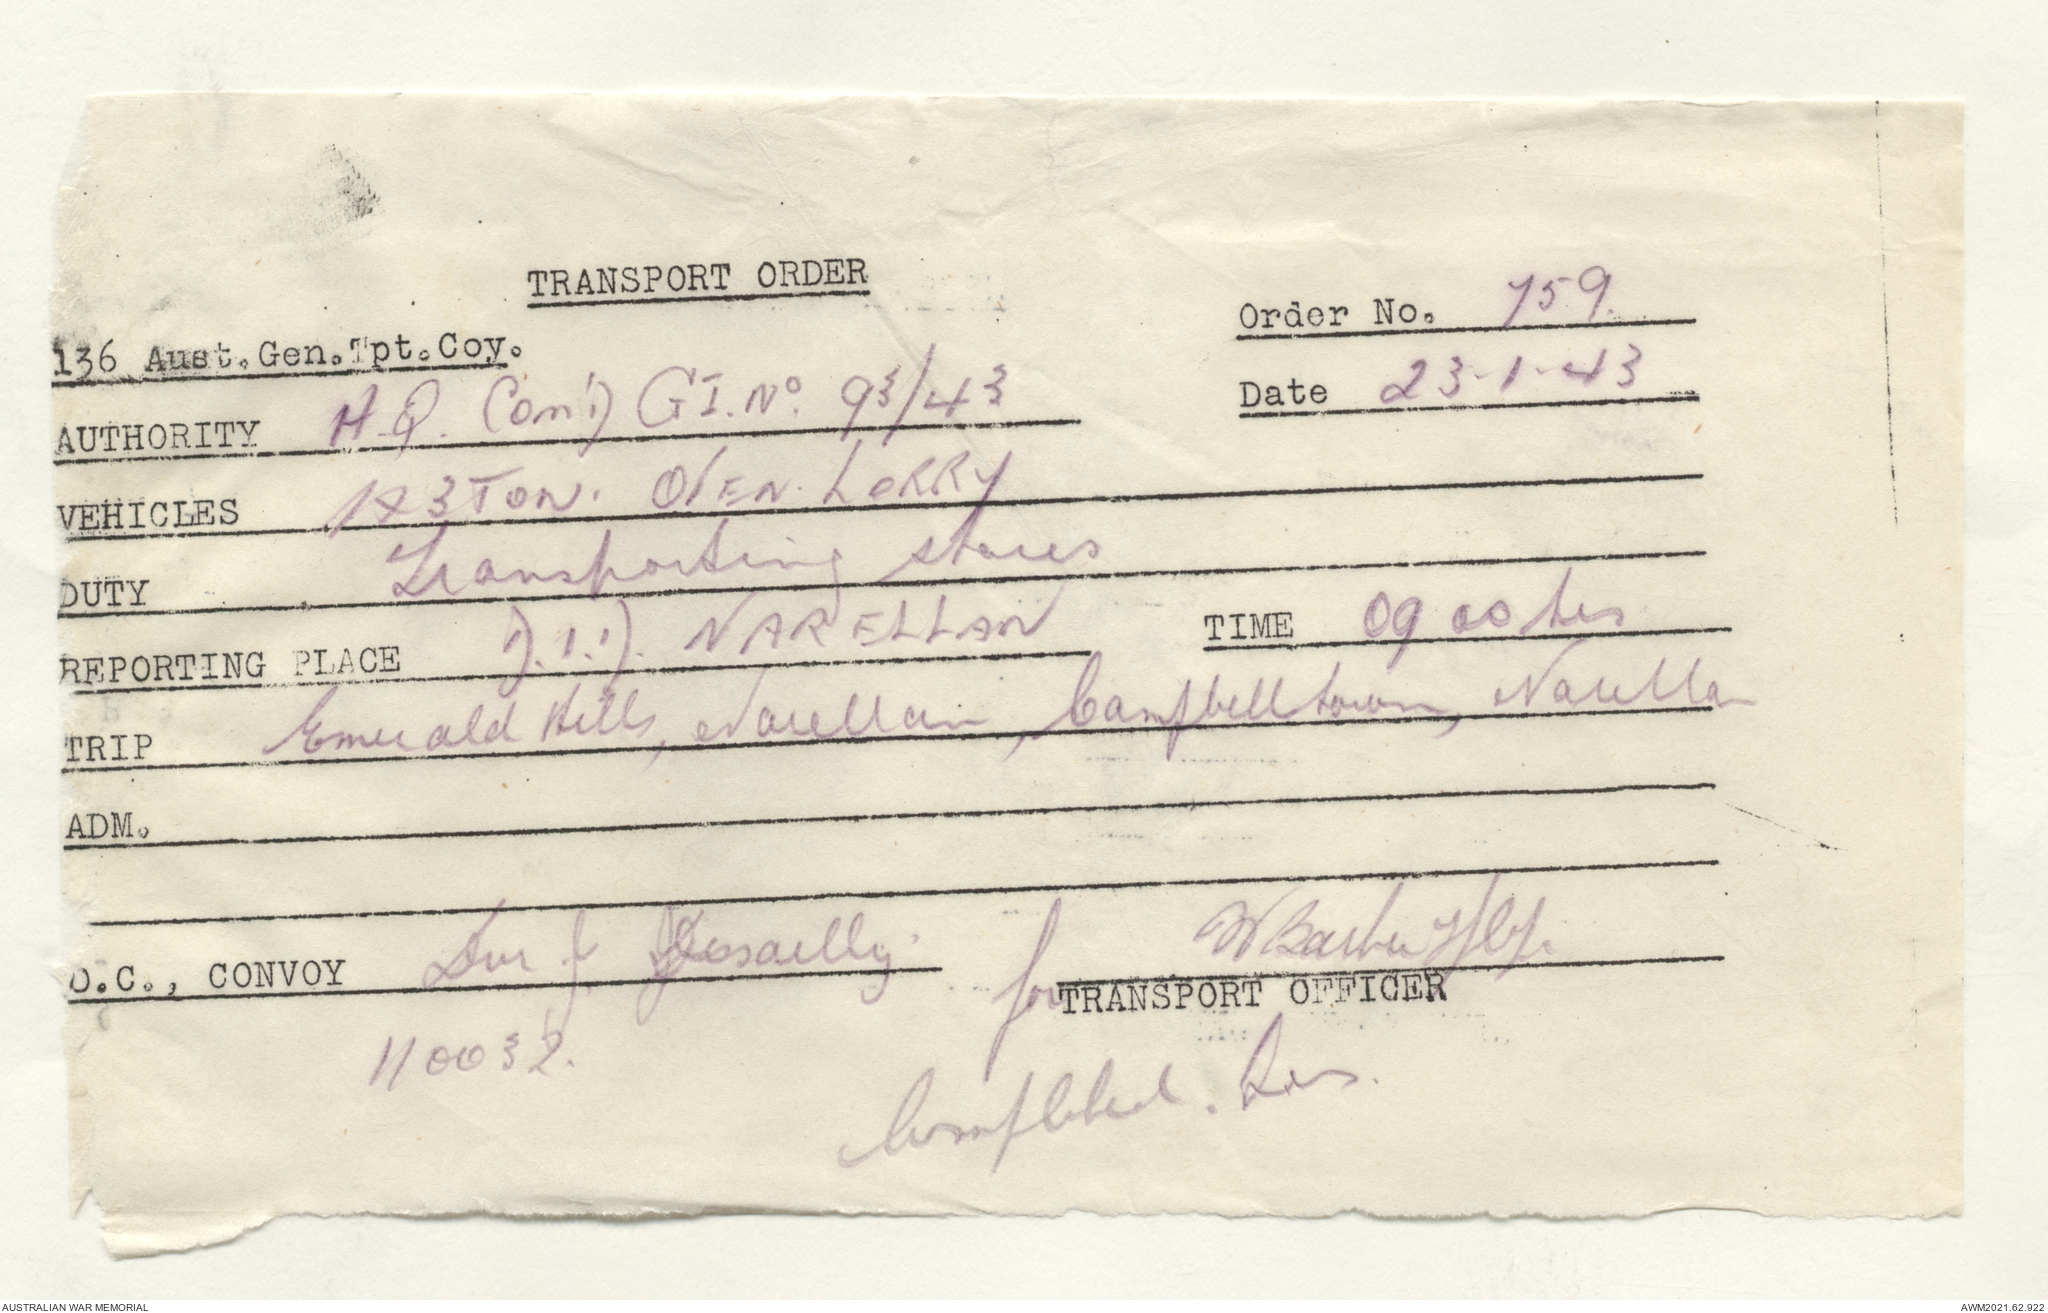 TRANSPORT ORDER
Order No. 759.
136 Aust.Gen.Tpt.Coy.
Date 23-1-43
AUTHORITY H.Q. Com'd GI.No. 93/43
VEHICLES 1 x 3 TON. OPEN. LORRY
DUTY Transporting stores
REPORTING PLACE D.I.D. NARELLAN TIME 0900 hrs
TRIP Emerald Hills, Narellan, Campbelltown, Narellan
ADM.
O.C., CONVOY Dvr J Dessailly. for W Barber
TRANSPORT OFFICER
110032.
Completed.
AUSTRALIAN WAR MEMORIAL
AWM2021.62.922